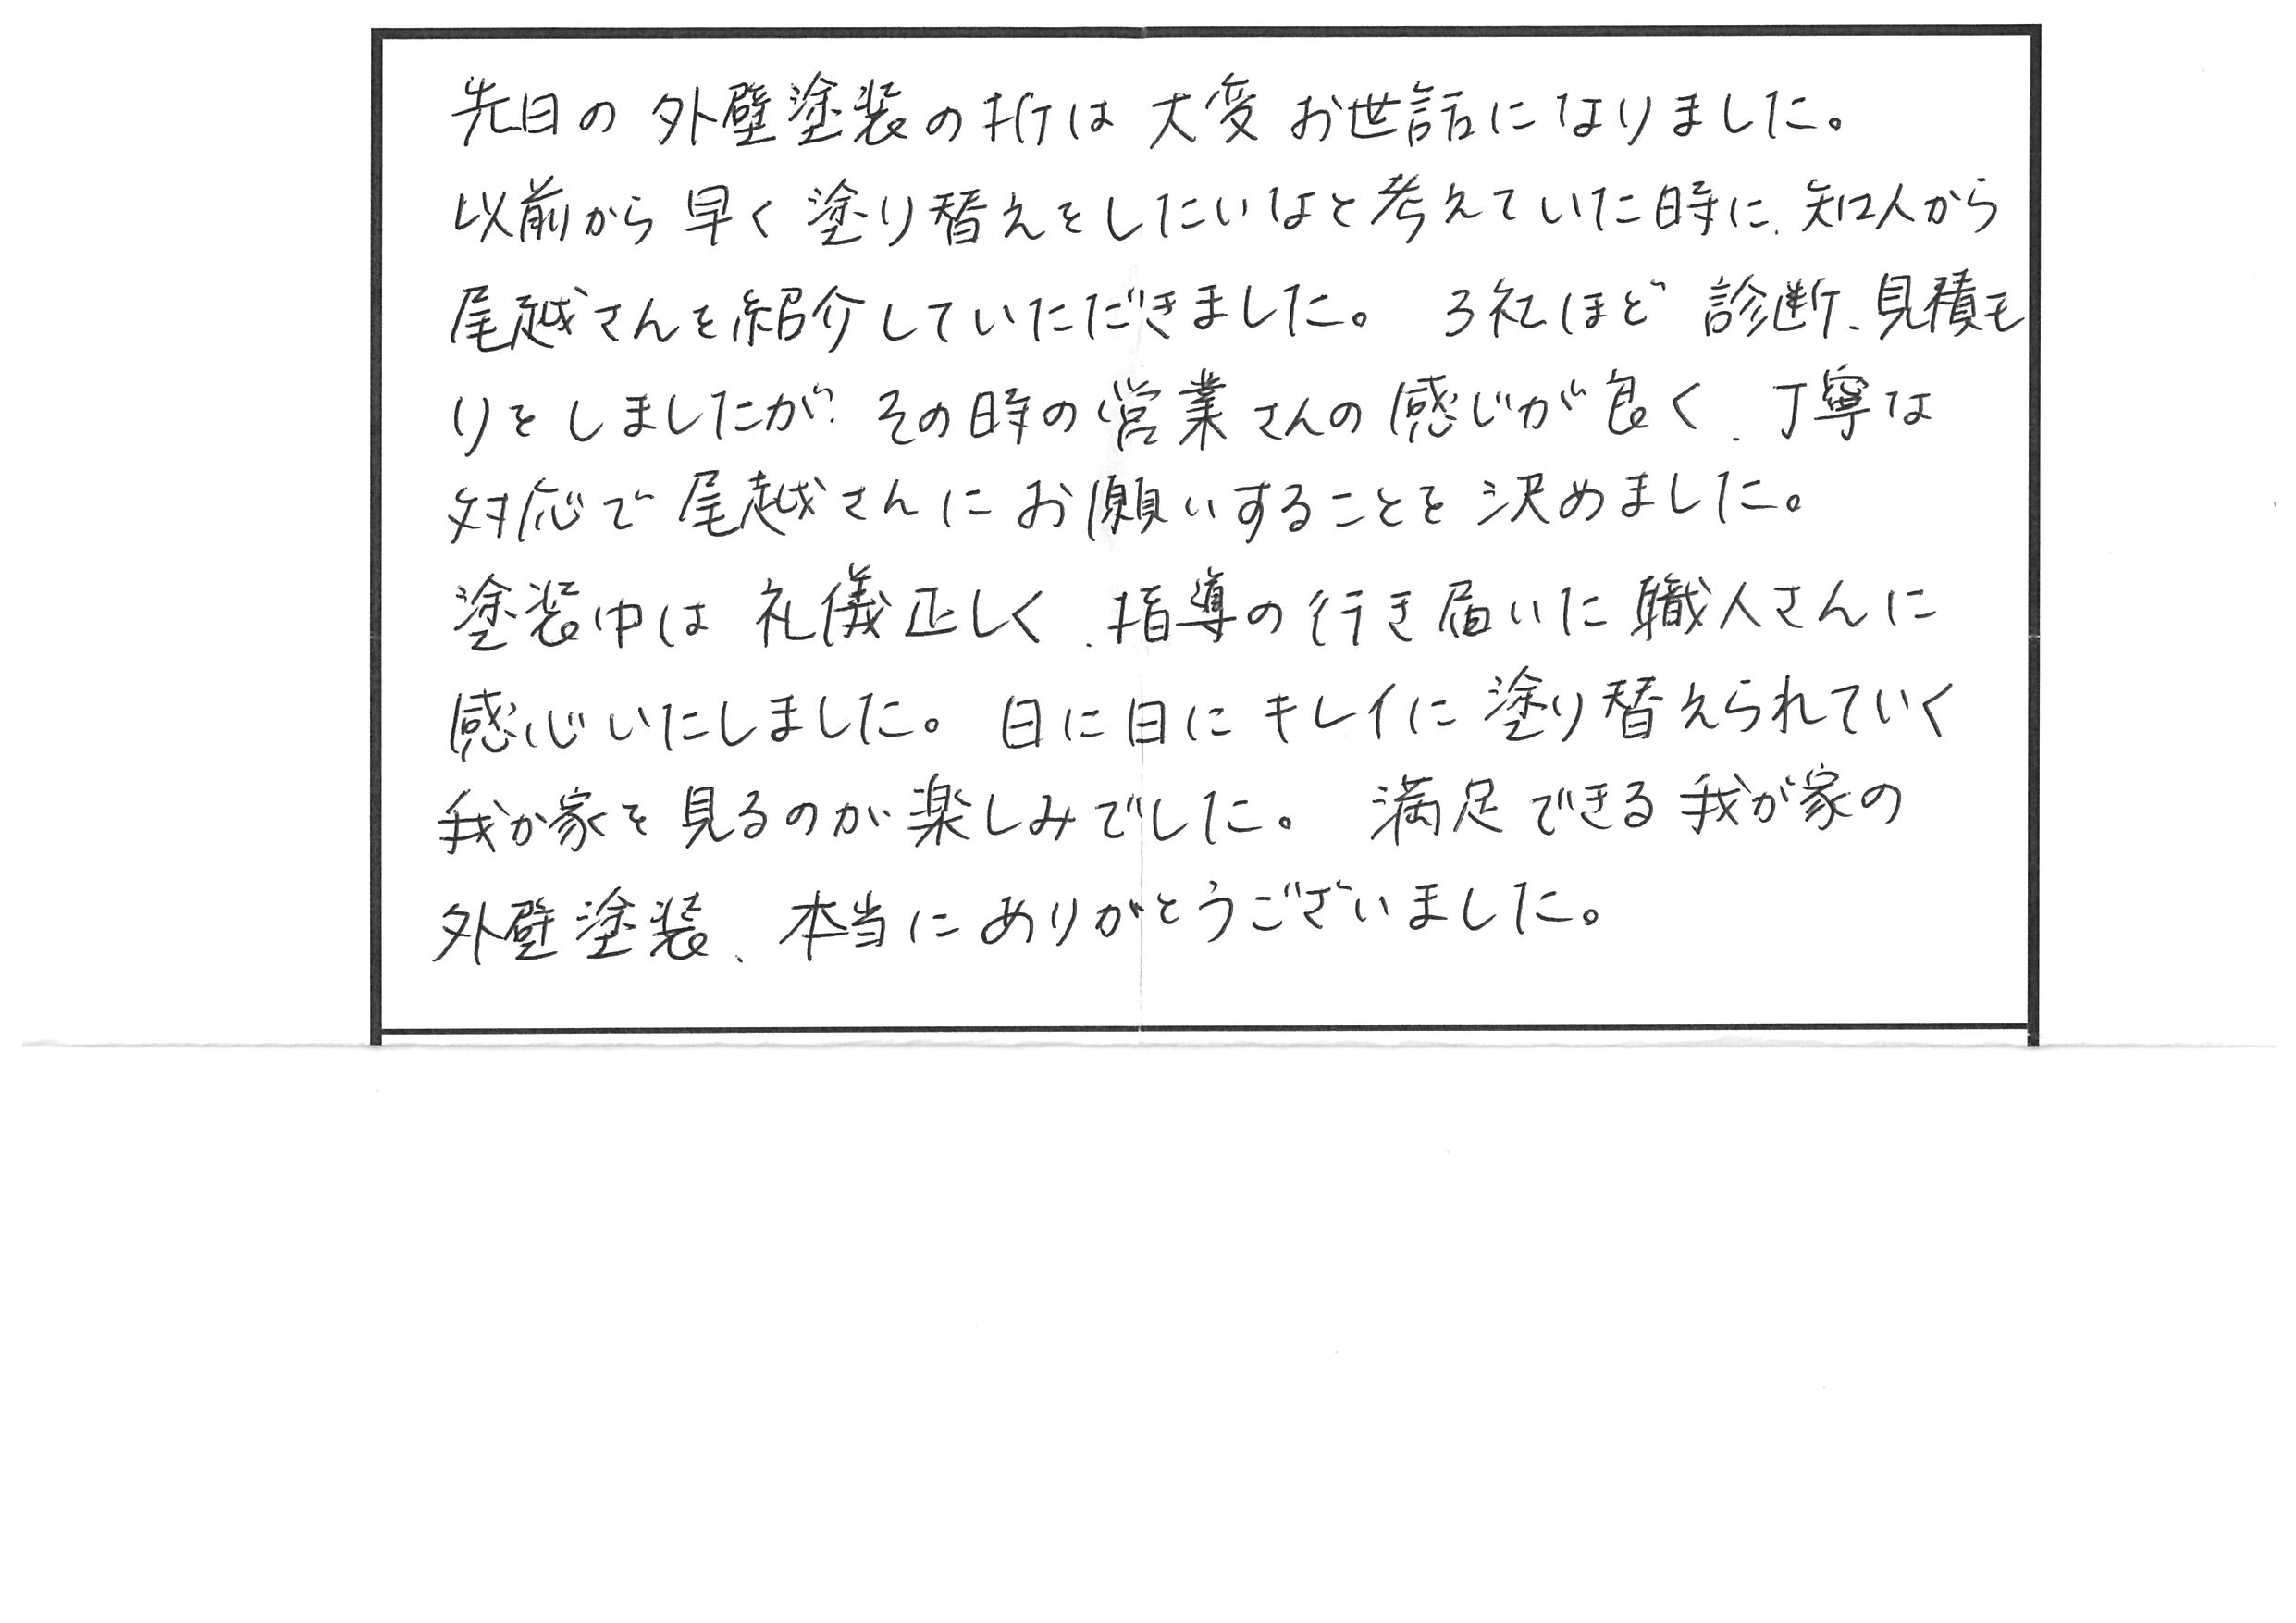 先日の外壁塗装の折は大変お世話になりました。
以前から早く塗り替えをしたいなと考えていた時に、知人から
尾越さんを紹介していただきました。 3社ほど診断、見積も
りをしましたが、その時の営業さんの感じが良く、丁寧な
対応で尾越さんにお願いすることを決めました。
塗装中は礼儀正しく、指導の行き届いた職人さんに
感心いたしました。日に日にキレイに塗り替えられていく
我が家を見るのが楽しみでした。 満足できる我が家の
外壁塗装、本当にありがとうございました。